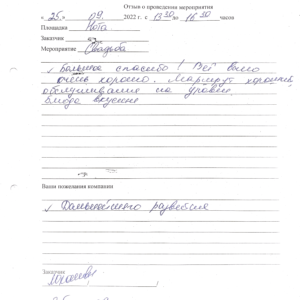 Отзыв о проведении мероприятия
« 25 » 09. 2022 г. с 13 30 до 16 30 часов
Площадка Нота
Заказчик
Мероприятие Свадьба
Большое спасибо! Всё было
очень хорошо. Маршрут хороший,
обслуживание на уровне,
блюда вкусные
Ваши пожелания компании
Дальнейшего развития
Заказчик